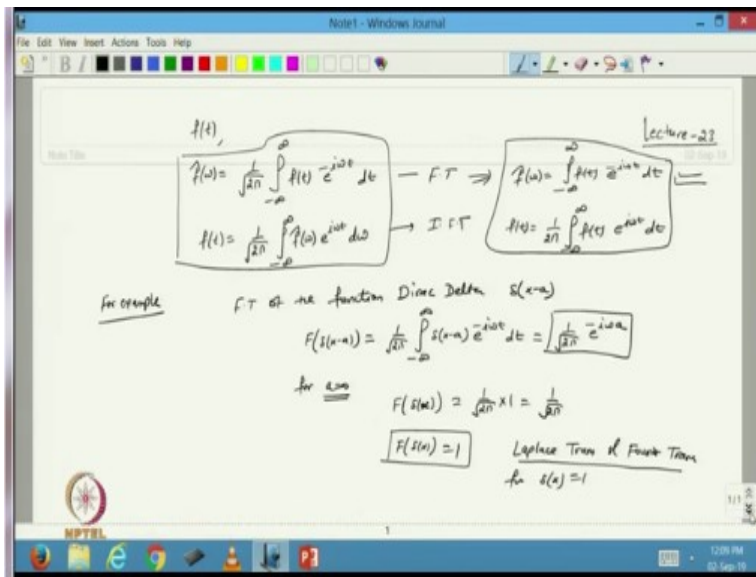 Note1 - Windows Journal
File Edit View Insert Actions Tools Help
Note Title
02-Sep-19
Lecture-23
f(t),
f̂(ω) = 1/√2π ∫_{-∞}^{∞} f(t) e^{-iωt} dt — F.T ⇒ f̂(ω) = ∫_{-∞}^{∞} f(t) e^{-iωt} dt
f(t) = 1/√2π ∫_{-∞}^{∞} f̂(ω) e^{iωt} dω → I.F.T f(t) = 1/2π ∫_{-∞}^{∞} f(t) e^{iωt} dt
For example F.T of the function Dirac Delta δ(x-a)
F(δ(x-a)) = 1/√2π ∫_{-∞}^{∞} δ(x-a) e^{-iωt} dt = 1/√2π e^{-iωa}
for a=0
F(δ(x)) = 1/√2π × 1 = 1/√2π
F(δ(x)) = 1 Laplace Trans & Fourier Trans
for δ(x) = 1
NPTEL
1
1/1
12:09 PM
02-Sep-19